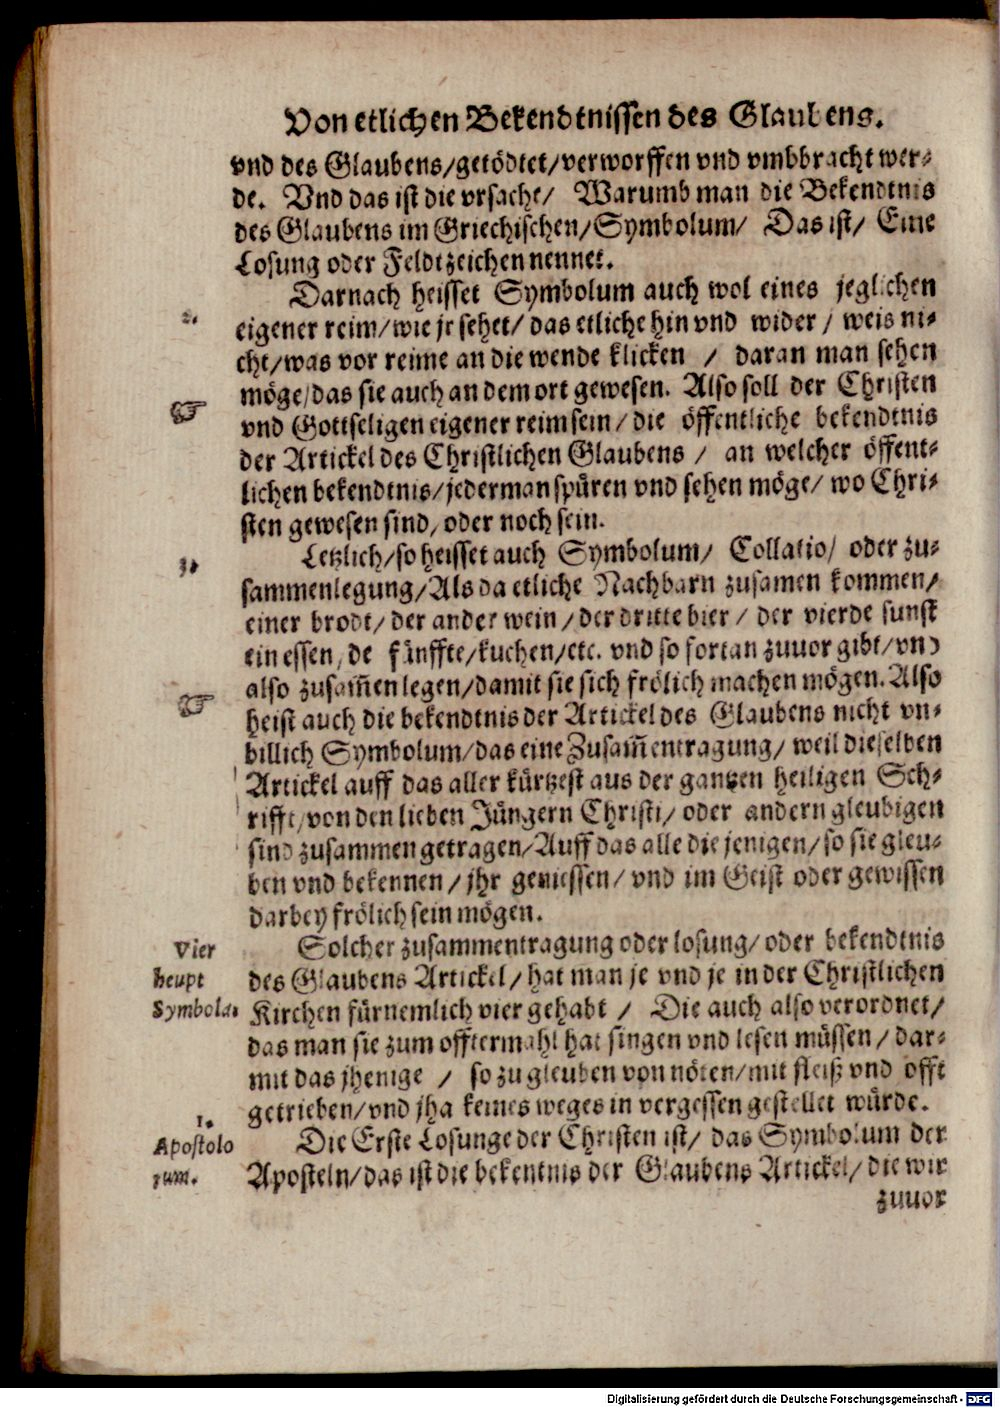 Von etlichen Bekendtnissen des Glaubens.
vnd des Glaubens/getödtet/verworffen vnd vmbbracht wer-
de. Vnd das ist die vrsache/ Warumb man die Bekendtnis
des Glaubens im Griechischen/Symbolum/ Das ist/ Eine
Losung oder Feldtzeichen nennet.
2.
Darnach heisset Symbolum auch wol eines jeglichen
eigener reim/wie jr sehet/ das etliche hin vnd wider/ weis ni-
cht/was vor reime an die wende klicken / daran man sehen
möge/das sie auch an dem ort gewesen. Also soll der Christen
vnd Gottseligen eigener reim sein/die öffentliche bekendtnis
der Artickel des Christlichen Glaubens / an welcher öffent-
lichen bekendtnis/jederman spüren vnd sehen möge/ wo Chri-
sten gewesen sind, oder noch sein.
3.
Letzlich/so heisset auch Symbolum/ Collatio/ oder zu-
sammenlegung/Als da etliche Nachbarn zusamen kommen/
einer brodt/der ander wein/der dritte bier/ der vierde sunst
ein essen, de fünffte/kuchen/etc. vnd so fortan zuuor gibt/vnd
also zusam̄en legen/damit sie sich frölich machen mögen. Also
heist auch die bekendtnis der Artickel des Glaubens nicht vn-
billich Symbolum/das eine Zusam̄entragung/ weil dieselben
Artickel auff das aller kürtzest aus der gantzen heiligen Sch-
rifft/von den lieben Jüngern Christi/ oder andern gleubigen
sind zusammen getragen/Auff das alle die jenigen/so sie gleu-
ben vnd bekennen/jhr geniessen/ vnd im Geist oder gewissen
darbey frölich sein mögen.
Vier
heupt
Symbola.
Solcher zusammentragung oder losung/ oder bekendtnis
des Glaubens Artickel/hat man je vnd je in der Christlichen
Kirchen fürnemlich vier gehabt / Die auch also verordnet/
das man sie zum offtermahl hat singen vnd lesen müssen/ dar-
mit das jhenige / so zu gleuben von nöten/mit fleiß vnd offt
getrieben/vnd jha keines weges in vergessen gestellet würde.
1.
Apostolo
rum.
Die Erste Losunge der Christen ist/ das Symbolum der
Aposteln/das ist die bekentnis der Glaubens Artickel/die wir
zuuor
Digitalisierung gefördert durch die Deutsche Forschungsgemeinschaft - DFG